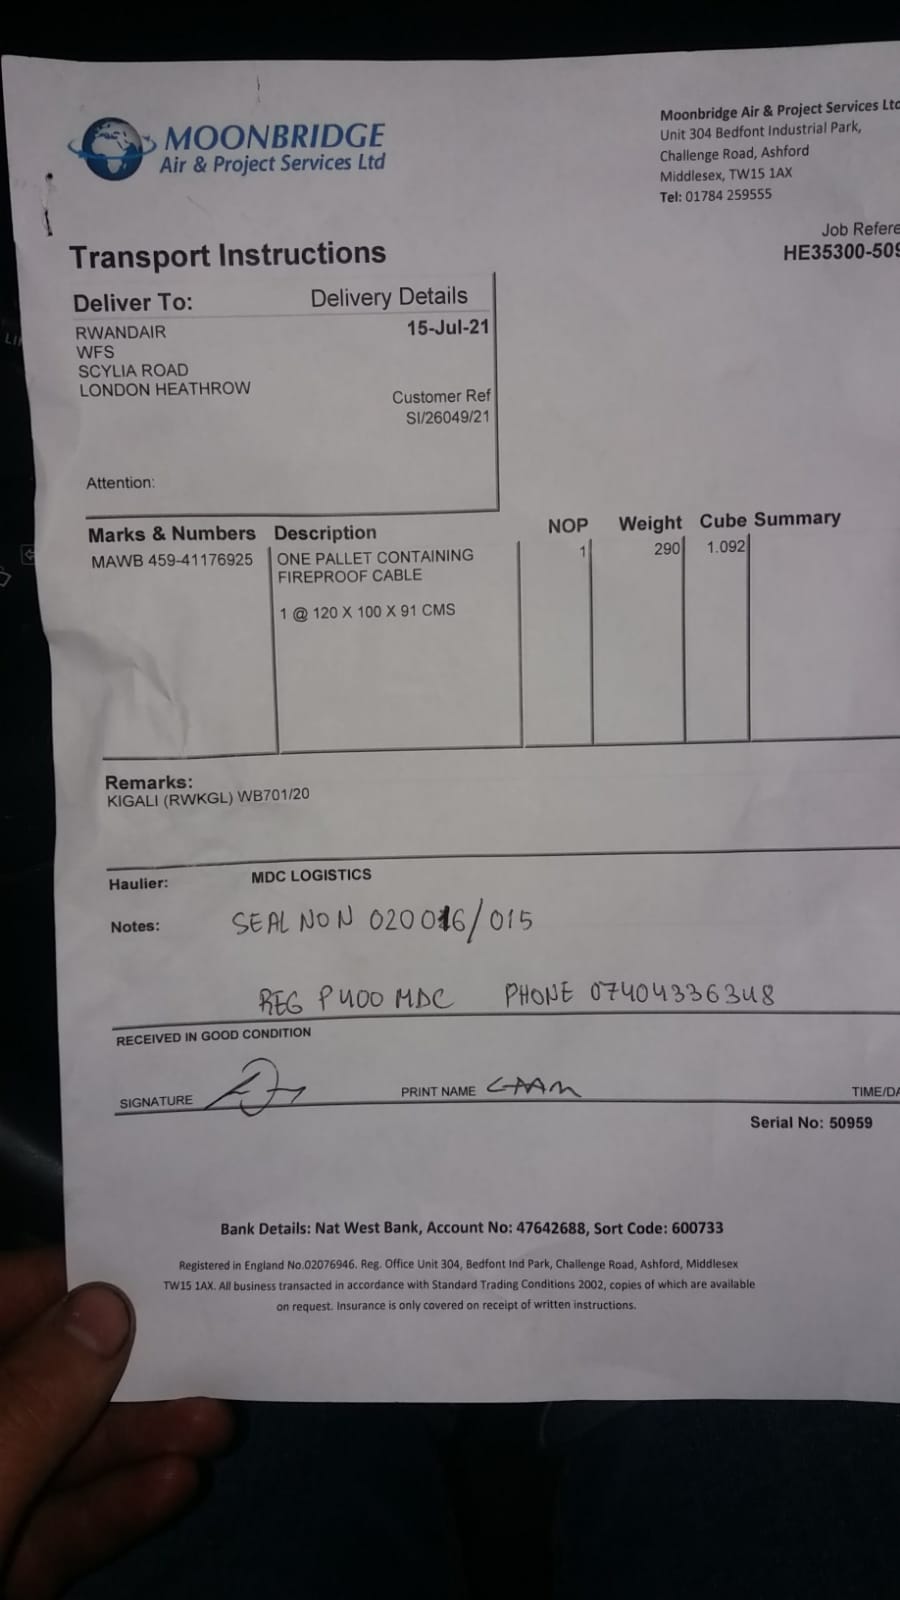 MOONBRIDGE
Air & Project Services Ltd
Moonbridge Air & Project Services Ltd
Unit 304 Bedfont Industrial Park,
Challenge Road, Ashford
Middlesex, TW15 1AX
Tel: 01784 259555
Job Refere
HE35300-509
Transport Instructions
Deliver To: Delivery Details
RWANDAIR 15-Jul-21
WFS
SCYLIA ROAD
LONDON HEATHROW
Customer Ref
SI/26049/21
Attention:
Marks & Numbers Description NOP Weight Cube Summary
MAWB 459-41176925 ONE PALLET CONTAINING 1 290 1.092
FIREPROOF CABLE
1 @ 120 X 100 X 91 CMS
Remarks:
KIGALI (RWKGL) WB701/20
Haulier: MDC LOGISTICS
Notes: SEAL NO N 020016/015
REG P400 MDC PHONE 07404336348
RECEIVED IN GOOD CONDITION
SIGNATURE PRINT NAME TIME/DA
Serial No: 50959
Bank Details: Nat West Bank, Account No: 47642688, Sort Code: 600733
Registered in England No.02076946. Reg. Office Unit 304, Bedfont Ind Park, Challenge Road, Ashford, Middlesex
TW15 1AX. All business transacted in accordance with Standard Trading Conditions 2002, copies of which are available
on request. Insurance is only covered on receipt of written instructions.